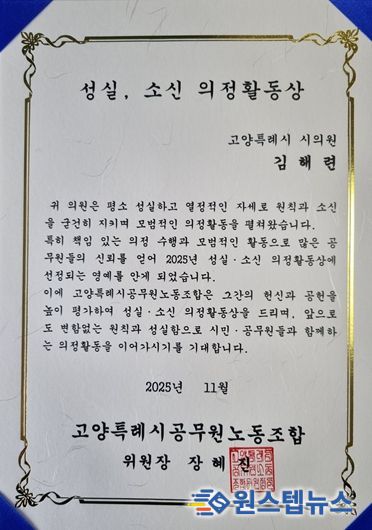 성실, 소신 의정활동상
고양특례시 시의원
김 해 련
귀 의원은 평소 성실하고 열정적인 자세로 원칙과 소신
을 굳건히 지키며 모범적인 의정활동을 펼쳐왔습니다.
특히 책임 있는 의정 수행과 모범적인 활동으로 많은 공
무원들의 신뢰를 얻어 2025년 성실·소신 의정활동상에
선정되는 영예를 안게 되었습니다.
이에 고양특례시공무원노동조합은 그간의 헌신과 공헌을
높이 평가하여 성실·소신 의정활동상을 드리며, 앞으로
도 변함없는 원칙과 성실함으로 시민·공무원들과 함께하
는 의정활동을 이어가시기를 기대합니다.
2025년 11월
고양특례시공무원노동조합
위원장 장 혜 진
원스텝뉴스